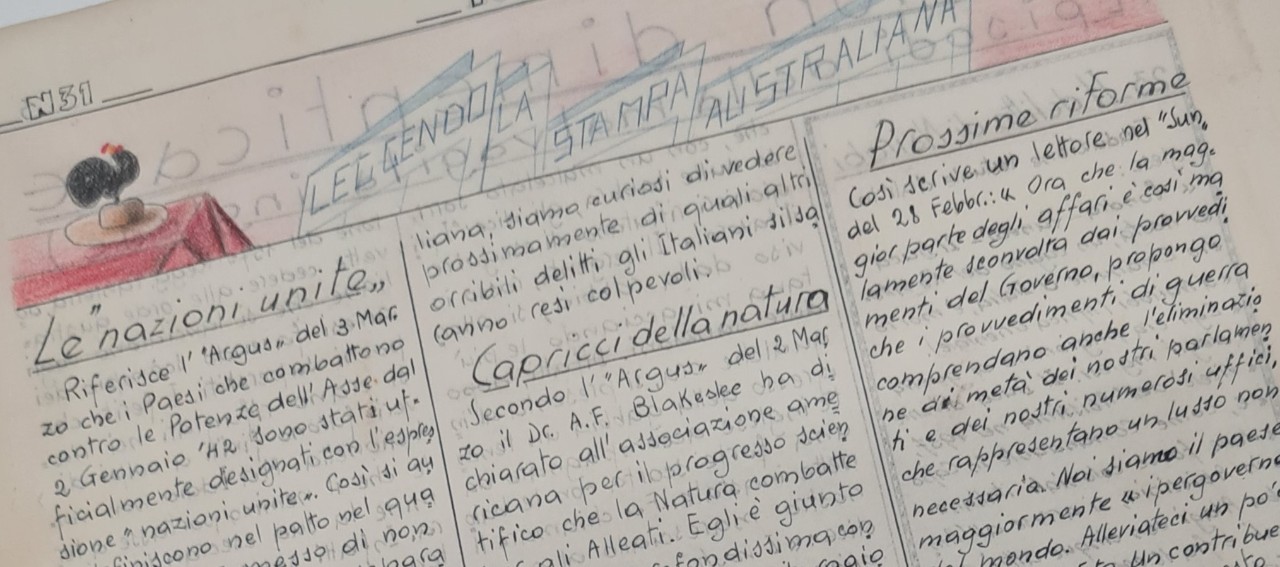 N31
LEGGENDO LA STAMPA AUSTRALIANA
Le "nazioni unite"
Riferisce l'"Argus" del 3 Mar
zo che i Paesi che combattono
contro le Potenze dell'Asse dal
2 Gennaio '42 sono stati uf-
ficialmente designati con l'espres
sione "nazioni unite". Così si au
nel patto nel qua
di non
liana, siamo curiosi di vedere
prossimamente di quali altri
orribili delitti gli Italiani si sa
ranno resi colpevoli.
Capricci della natura
Secondo l'"Argus" del 2 Mar
zo il Dr. A.F. Blakeslee ha di
chiarato all'associazione ame
ricana per il progresso scien
tifico che la Natura combatte
gli Alleati. Egli è giunto
con
Prossime riforme
Così scrive un lettore nel "Sun"
del 28 Febbr.: "Ora che la mag-
gior parte degli affari è così ma
lamente sconvolta dai provvedi
menti del Governo, propongo
che i provvedimenti di guerra
comprendano anche l'eliminazio
ne di metà dei nostri parlamen
ti e dei nostri numerosi uffici,
che rappresentano un lusso non
necessario. Noi siamo il paese
maggiormente "ipergoverna
mondo. Alleviateci un po'
Un contribue